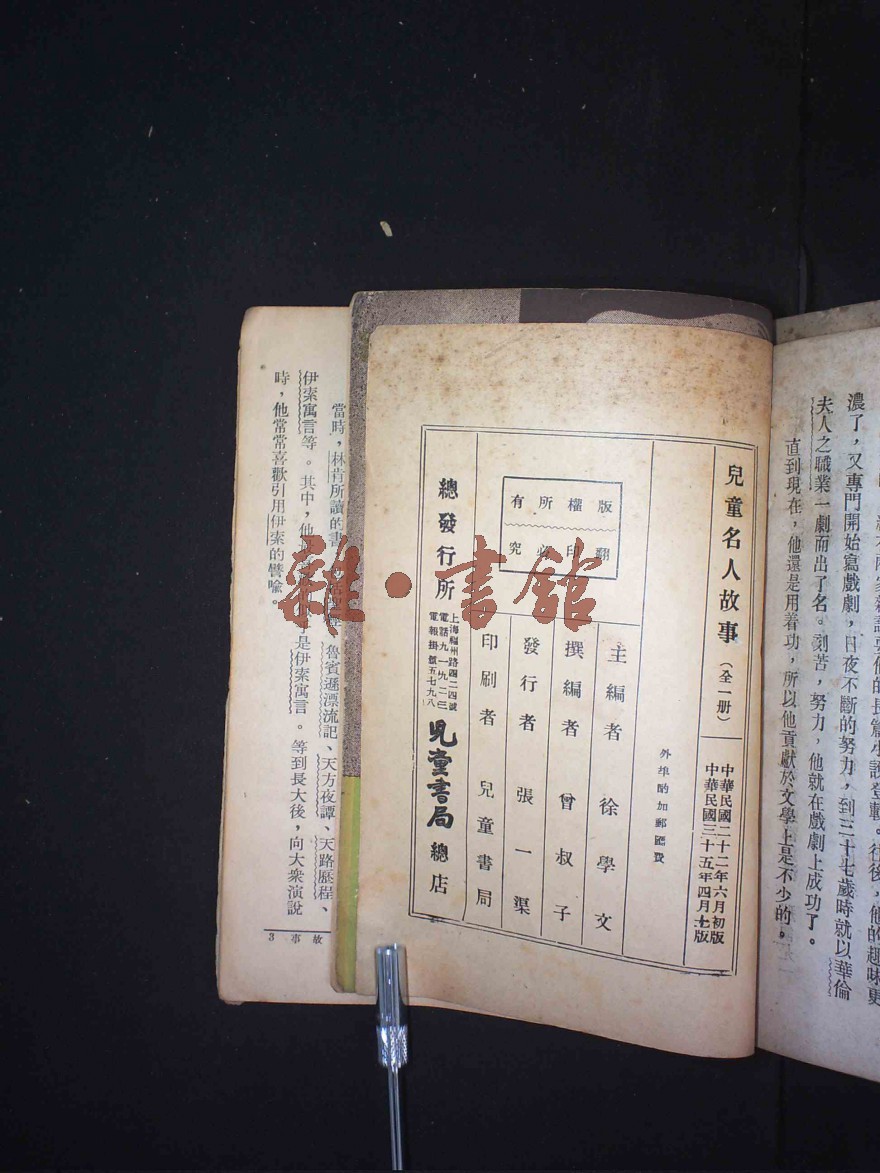 濃了，又專門開始寫戲劇，日夜不斷的努力，到三十七歲時就以華倫
夫人之職業一劇而出了名。刻苦，努力，他就在戲劇上成功了。
直到現在，他還是用着功，所以他貢獻於文學上是不少的。
兒童名人故事（全一册）
中華民國二十二年六月初版
中華民國三十五年四月七版
外埠酌加郵匯費
版權所有
翻印必究
主編者 徐學文
撰編者 曾叔子
發行者 張一渠
印刷者 兒童書局
總發行所
上海福州路四二四號
兒童書局總店
當時，林肯所讀的書
魯賓遜漂流記、天方夜譚、天路歷程、
伊索寓言等。其中，他
是伊索寓言。等到長大後，向大衆演說
時，他常常喜歡引用伊索的譬喻。
故事 3
雜·書館